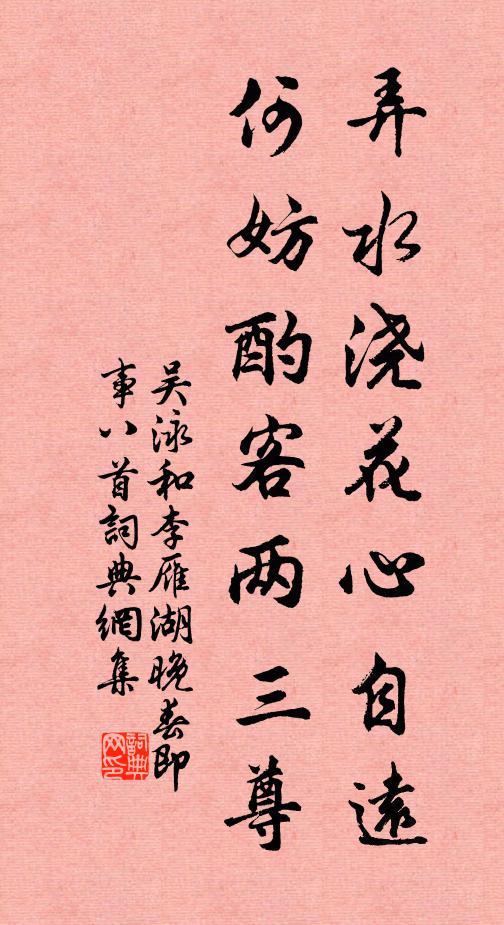 弄水浇花心自遠
何妨酌客两三尊
吴泳和李雁湖晚春即
事八首詞典網集
詞典网印